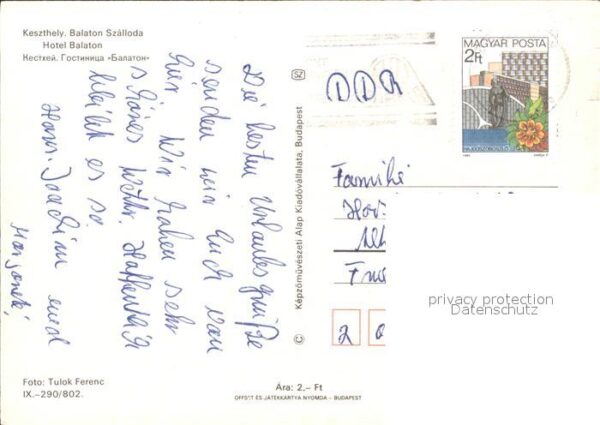 Keszthely. Balaton Szálloda
Hotel Balaton
Кестхей. Гостиница «Балатон»
Die besten Urlaubsgrüße
senden wir Euch von
hier. Wir haben sehr
schönes Wetter. Hoffentlich
bleibt es so.
Hans-Joachim und
SZ
© Képzőművészeti Alap Kiadóvállalata, Budapest
DDR
MAGYAR POSTA
2Ft
HAJDÚSZOBOSZLÓ
Familie
Hor
2
privacy protection
Datenschutz
Foto: Tulok Ferenc
IX.–290/802.
Ára: 2,– Ft
OFFSET ÉS JÁTÉKKÁRTYA NYOMDA – BUDAPEST